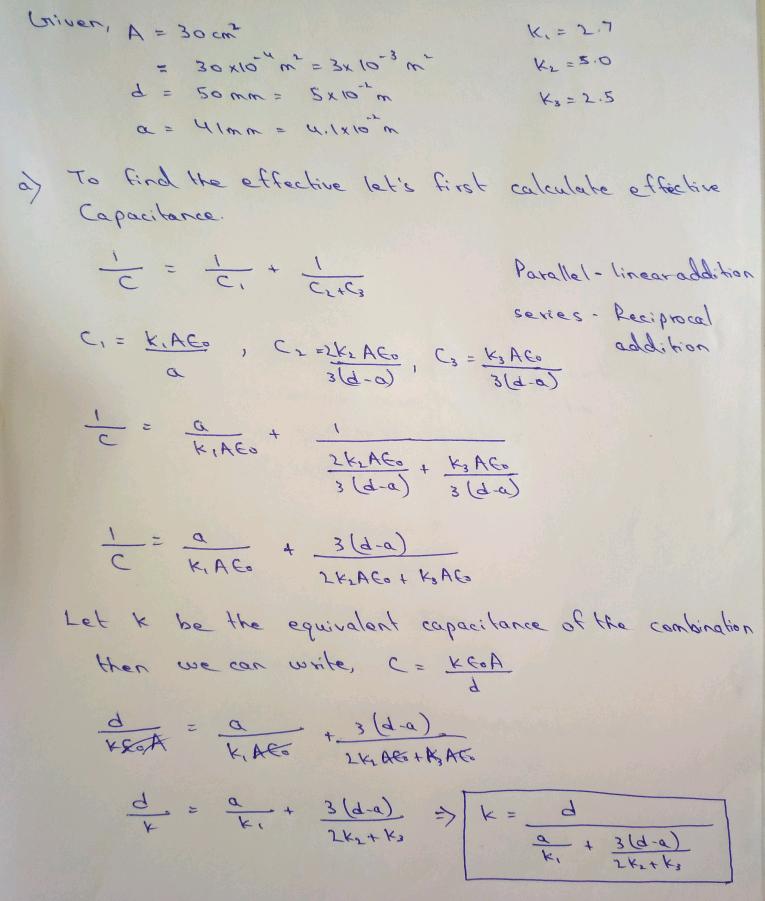 Given, A = 30 cm² K₁ = 2.7
= 30×10⁻⁴ m² = 3×10⁻³ m² K₂ = 5.0
d = 50 mm = 5×10⁻² m K₃ = 2.5
a = 41mm = 4.1×10⁻² m
a) To find the effective let's first calculate effective
Capacitance.
1/C = 1/C₁ + 1/(C₂+C₃) Parallel - linear addition
series - Reciprocal addition
C₁ = K₁AЄ₀/a , C₂ = 2K₂AЄ₀/3(d-a) , C₃ = K₃AЄ₀/3(d-a)
1/C = a/K₁AЄ₀ + 1/(2K₂AЄ₀/3(d-a) + K₃AЄ₀/3(d-a))
1/C = a/K₁AЄ₀ + 3(d-a)/(2K₂AЄ₀ + K₃AЄ₀)
Let K be the equivalent capacitance of the combination
then we can write, C = KЄ₀A/d
d/KЄ₀A = a/K₁AЄ₀ + 3(d-a)/(2K₂AЄ₀ + K₃AЄ₀)
d/K = a/K₁ + 3(d-a)/(2K₂+K₃) ⇒ K = d/(a/K₁ + 3(d-a)/(2K₂+K₃))